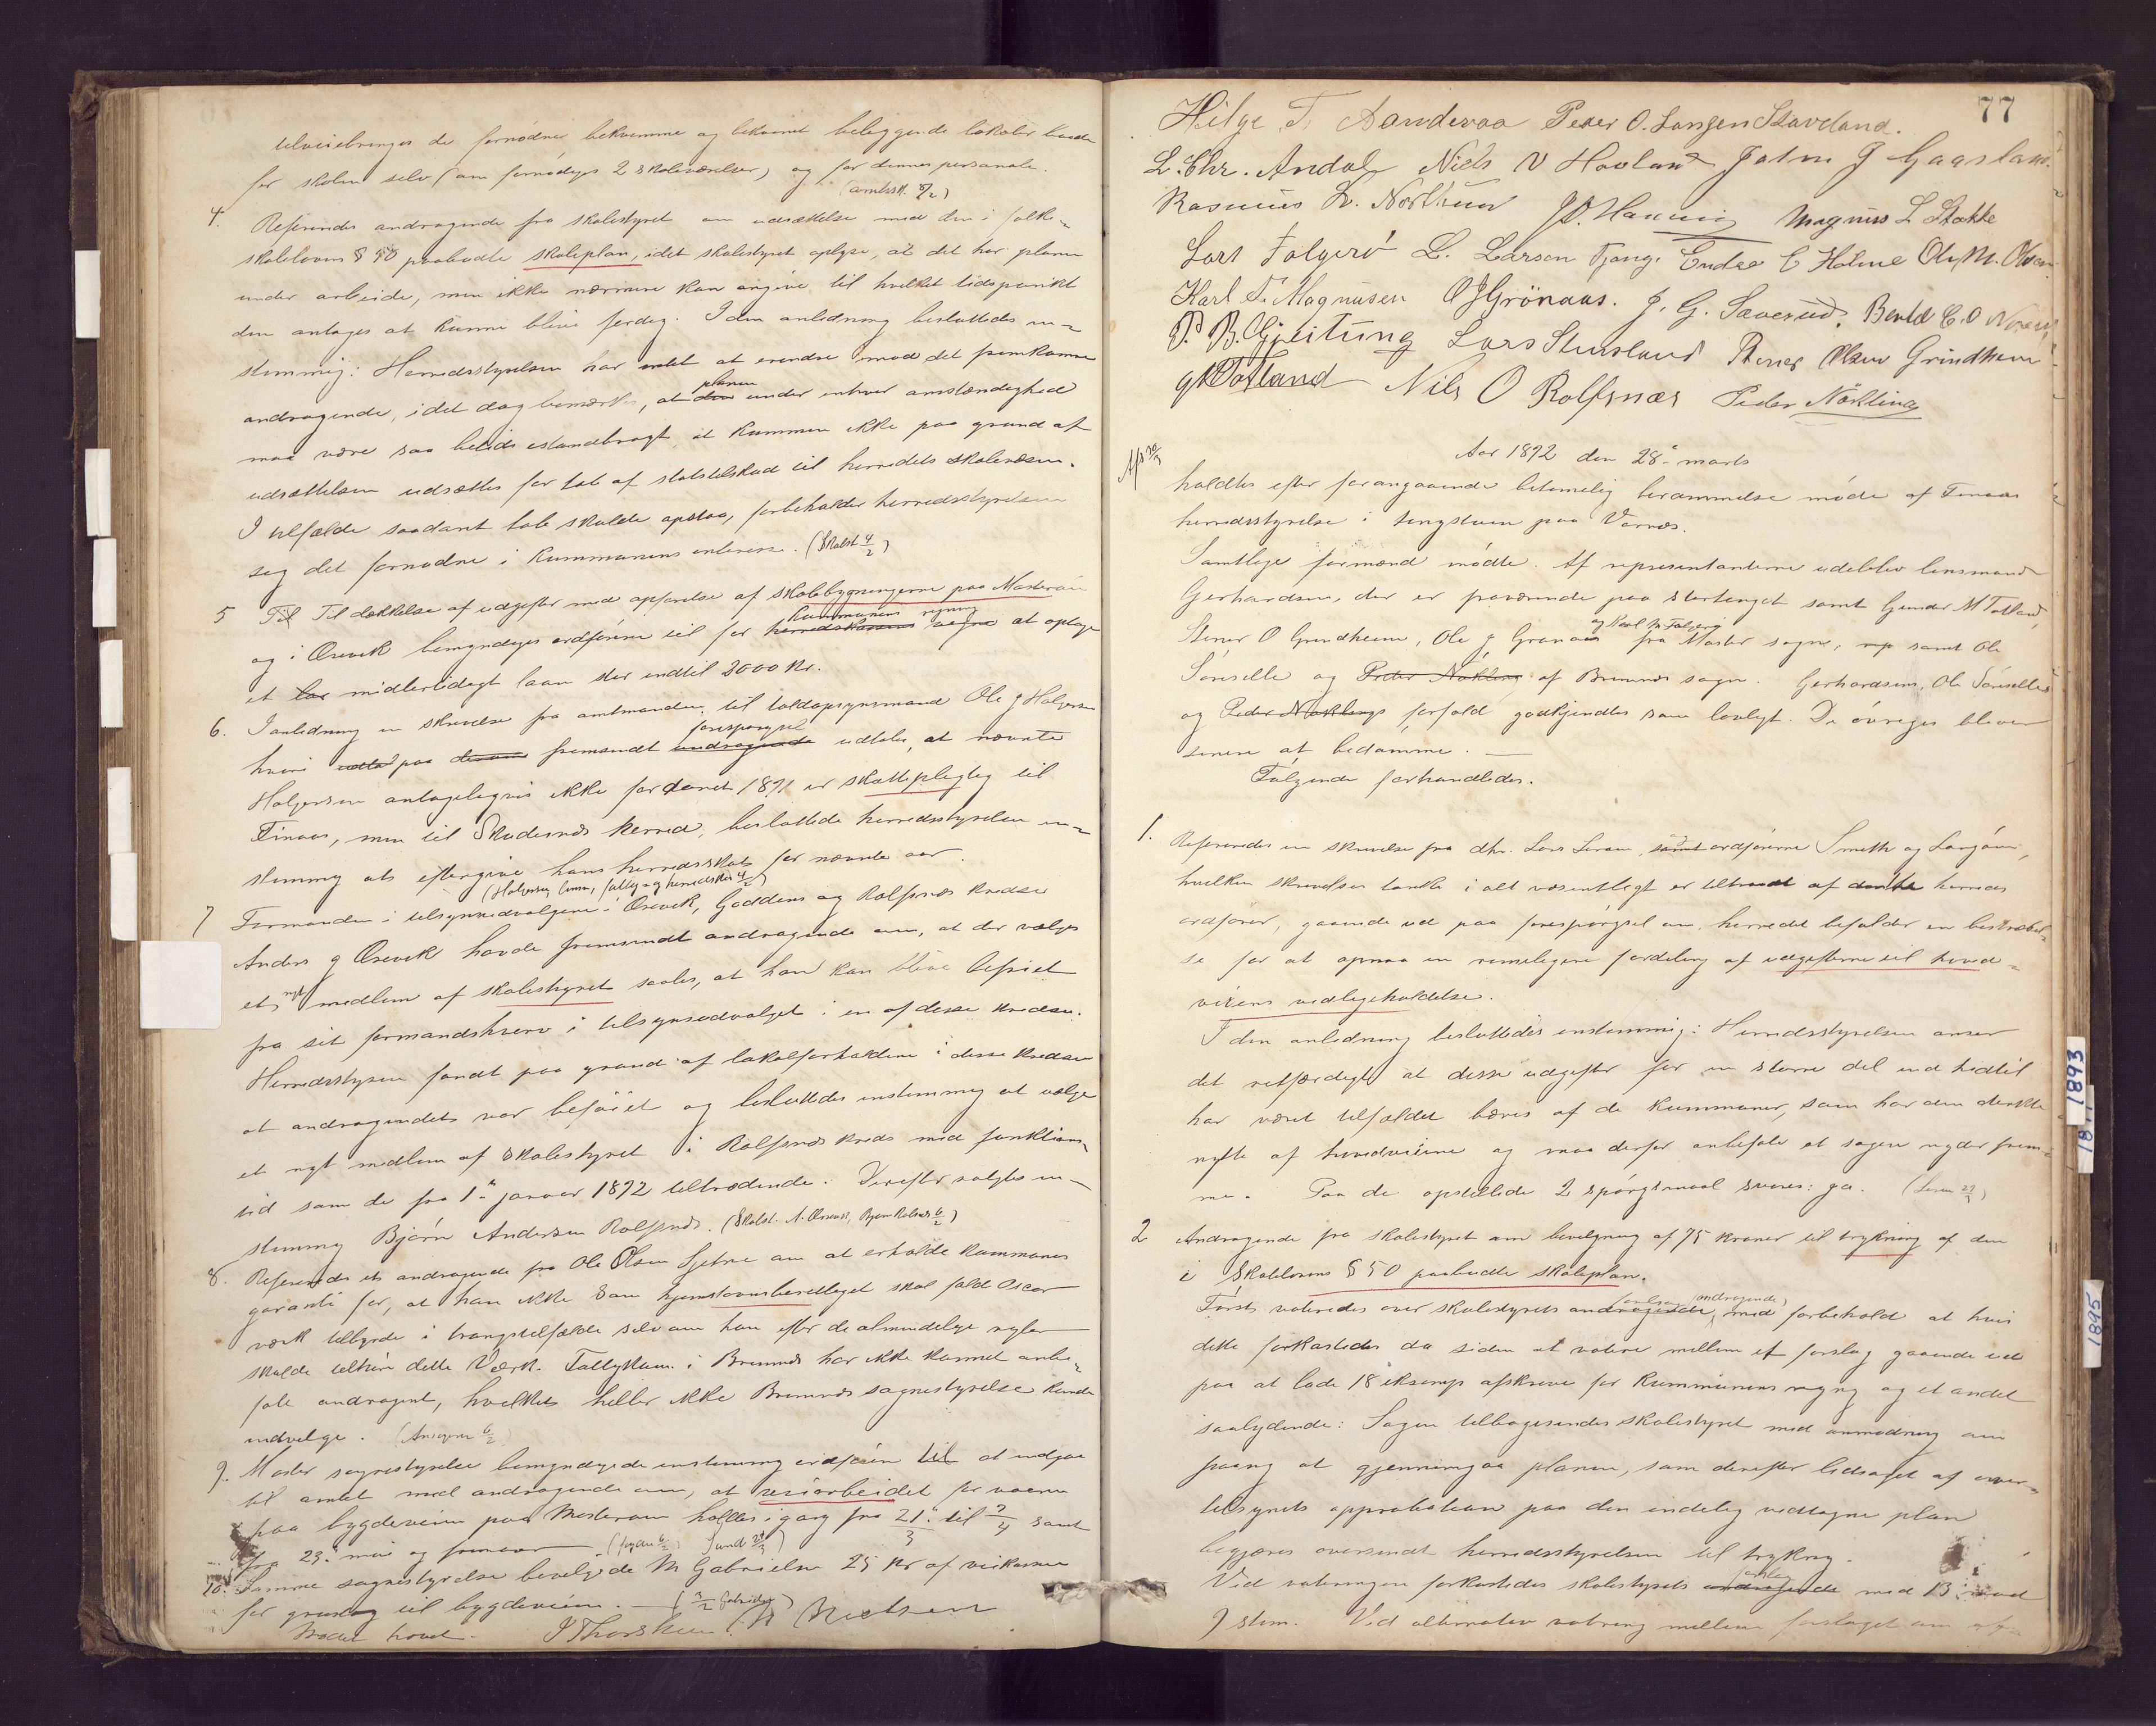 tilveiebringes de fornødne, bekvemme og bekvemt beliggende lokaler baade
for skolen selv (om fornødiges 2 skoleværelser) og for dennes personale.
4. Refereredes andragende fra skolestyret om udsættelse med den i folke-
skolelovens § 50 paabudte skoleplan, idet skolestyret oplyse, at det har planen
under arbeide, men ikke nærmere kan angive til hvilket tidspunkt
den antages at kunne blive færdig. I den anledning besluttedes en-
stemmig: Herredsstyrelsen har intet at erindre mod det fremkomne
andragende, idet dog bemærkes, at planen under enhver omstændighed
maa være saa betids istandbragt, at kommunen ikke paa grund af
udsættelsen udsættes for tab af statstilskud til herredets skolevæsen.
I tilfælde saadant tab skulde opstaa, forbeholder herredsstyrelsen
sig det fornødne i kommunens interesse. (Skolest 4/2)
5 Til dækkelse af udgifter med opførelse af skolebygningerne paa Mosterøen
og i Ørevik bemyndiges ordføreren til for kommunens regning at optage
et midlertidigt laan stor indtil 2000 Kr.
6. I anledning en skrivelse fra amtmanden til toldopsynsmand Ole J Holgersen
hvori paa fremsendt forespørgsel udtales, at nævnte
Holgersen antagelig ikke for aaret 1891 er skattepligtig til
Finaas, men til Skudesnæs herred, besluttede herredsstyrelsen en-
stemmig at eftergive hans herredsskat for nævnte aar.
7 Formanden i tilsynsudvalgene i Ørevik, Goddens og Rolfsnæs kredse
Anders J Ørevik havde fremsendt andragende om, at der vælges
et nyt medlem af skolestyret saales, at han kan blive befriet
fra sit formandshverv i tilsynsudvalget i en af disse kredse.
Herredsstyren fandt paa grund af lokalforholdene i disse kredse
at andragendet var beføiet og besluttedes enstemmig at vælge
et nyt medlem af skolestyret i Rolfsnæs kreds med funktions-
tid som de fra 1ste januar 1892 tiltrædende. Derefter valgtes en-
stemmig Bjørn Andersen Rolfsnæs.
8. Refereredes et andragende fra Ole Olsen Sjetne om at erholde kommunens
garanti for, at han ikke som hjemstavnsberettiget skal falde Oscar
værk tilbyrde i trangstilfælde selv om han efter de almindelige regler
skulde tilhøre dette Værk. Fattigkom. i Bremnæs har ikke kunnet anbe-
fale andragent, hvilket heller ikke Bremnæs sognestyrelse kunde
indvilge.
9. Moster sognestyrelse bemyndigede enstemmig ordføren til at indgaa
til amtet med andragende om, at veiarbeidet for vaaren
paa bygdeveien paa Mosterøen holdes i gang fra 21/3 til 9/4 samt
fra 23. mai og fremover
10. Samme sognestyrelse bevilgede M Gabrielsen 25 Kr af veikassen
for grustag til bygdeveien.
Mødet hævet.
77
Helge T. Aandevaa Peder O. Langen Stavland.
L. Chr. Andal Niels N Hovland John J Gaasland.
Rasmus L. Northun Magnus L Stokke
Lars Følgerø L. Larsen Tjong. Endre E Holme Ole M. Olsen
Karl T. Magnusen O J Grönaas. J. G. Sæverud. Bertel C. O
P. B. Gjeitung Lars Stensland Stener Olsen Grindheim
G M Totland Nils O Rolfsnæs Peder Nökling
Aar 1892 den 28de marts
holdtes efter forangaaende betimelig berammelse møde af Finaas
herredsstyrelse i tingstuen paa Vornæs.
Samtlige formænd mødte. Af repræsentanterne udeblev lensmand
Gerhardsen, der er fraværende paa stortinget samt Gunder M Totland,
Stener O Grindheim, Ole J. Grønaas og Karl M Følgerø fra Moster sogn, samt Ole
Sørselle og Peder Nökling af Bremnæs sogn. Gerhardsens, Ole Sörselles
og Peder Nøklings forfald godkjendtes som lovligt. De øvriges bliver
senere at bedømme.
Følgende forhandledes.
1. Refereredes en skrivelse fra dhr. Lars Leran, ordførerne Smith og Langøen,
hvilken skrivelses tanke i alt væsentligt er tiltraadt af dette herreds
ordfører, gaaende ud paa forespørgsel om herredet befalder en bestræbel-
se for at opnaa en rimeligere fordeling af udgifterne til hoved-
veiens vedligeholdelse.
I den anledning besluttedes enstemmig: Herredsstyrelsen anser
det retfærdigt at disse udgifter for en større del end hidtil
har været tilfældet bæres af de kommuner, som har den direkte
nytte af hovedveiene og maa derfor anbefale at sagen nyder frem-
me. Paa de opstillede 2 spørgsmaal svares: ja.
2 Andragende fra skolestyret om bevilgning af 75 kroner til trykning af den
i skolelovens § 50 paabudte skoleplan.
Først voteredes over skolestyrets andragende, med forbehold at hvis
dette forkastedes da siden at votere mellem et forslag gaaende ud
paa at lade 18 eksemp afskrive for kommunens regng og et andet
saalydende: Sagen tilbagesendes skolestyret med anmodning om
paany at gjennemgaa planen, som derefter ledsaget af over-
tilsynets approbation paa den endelig vedtagne plan
begjæres oversendt herredsstyrelsen til trykning.
Ved voteringen forkastedes skolestyrets andragende med 13 mod
9 stem. Ved alternativ votering mellem forslaget om
1893
1895